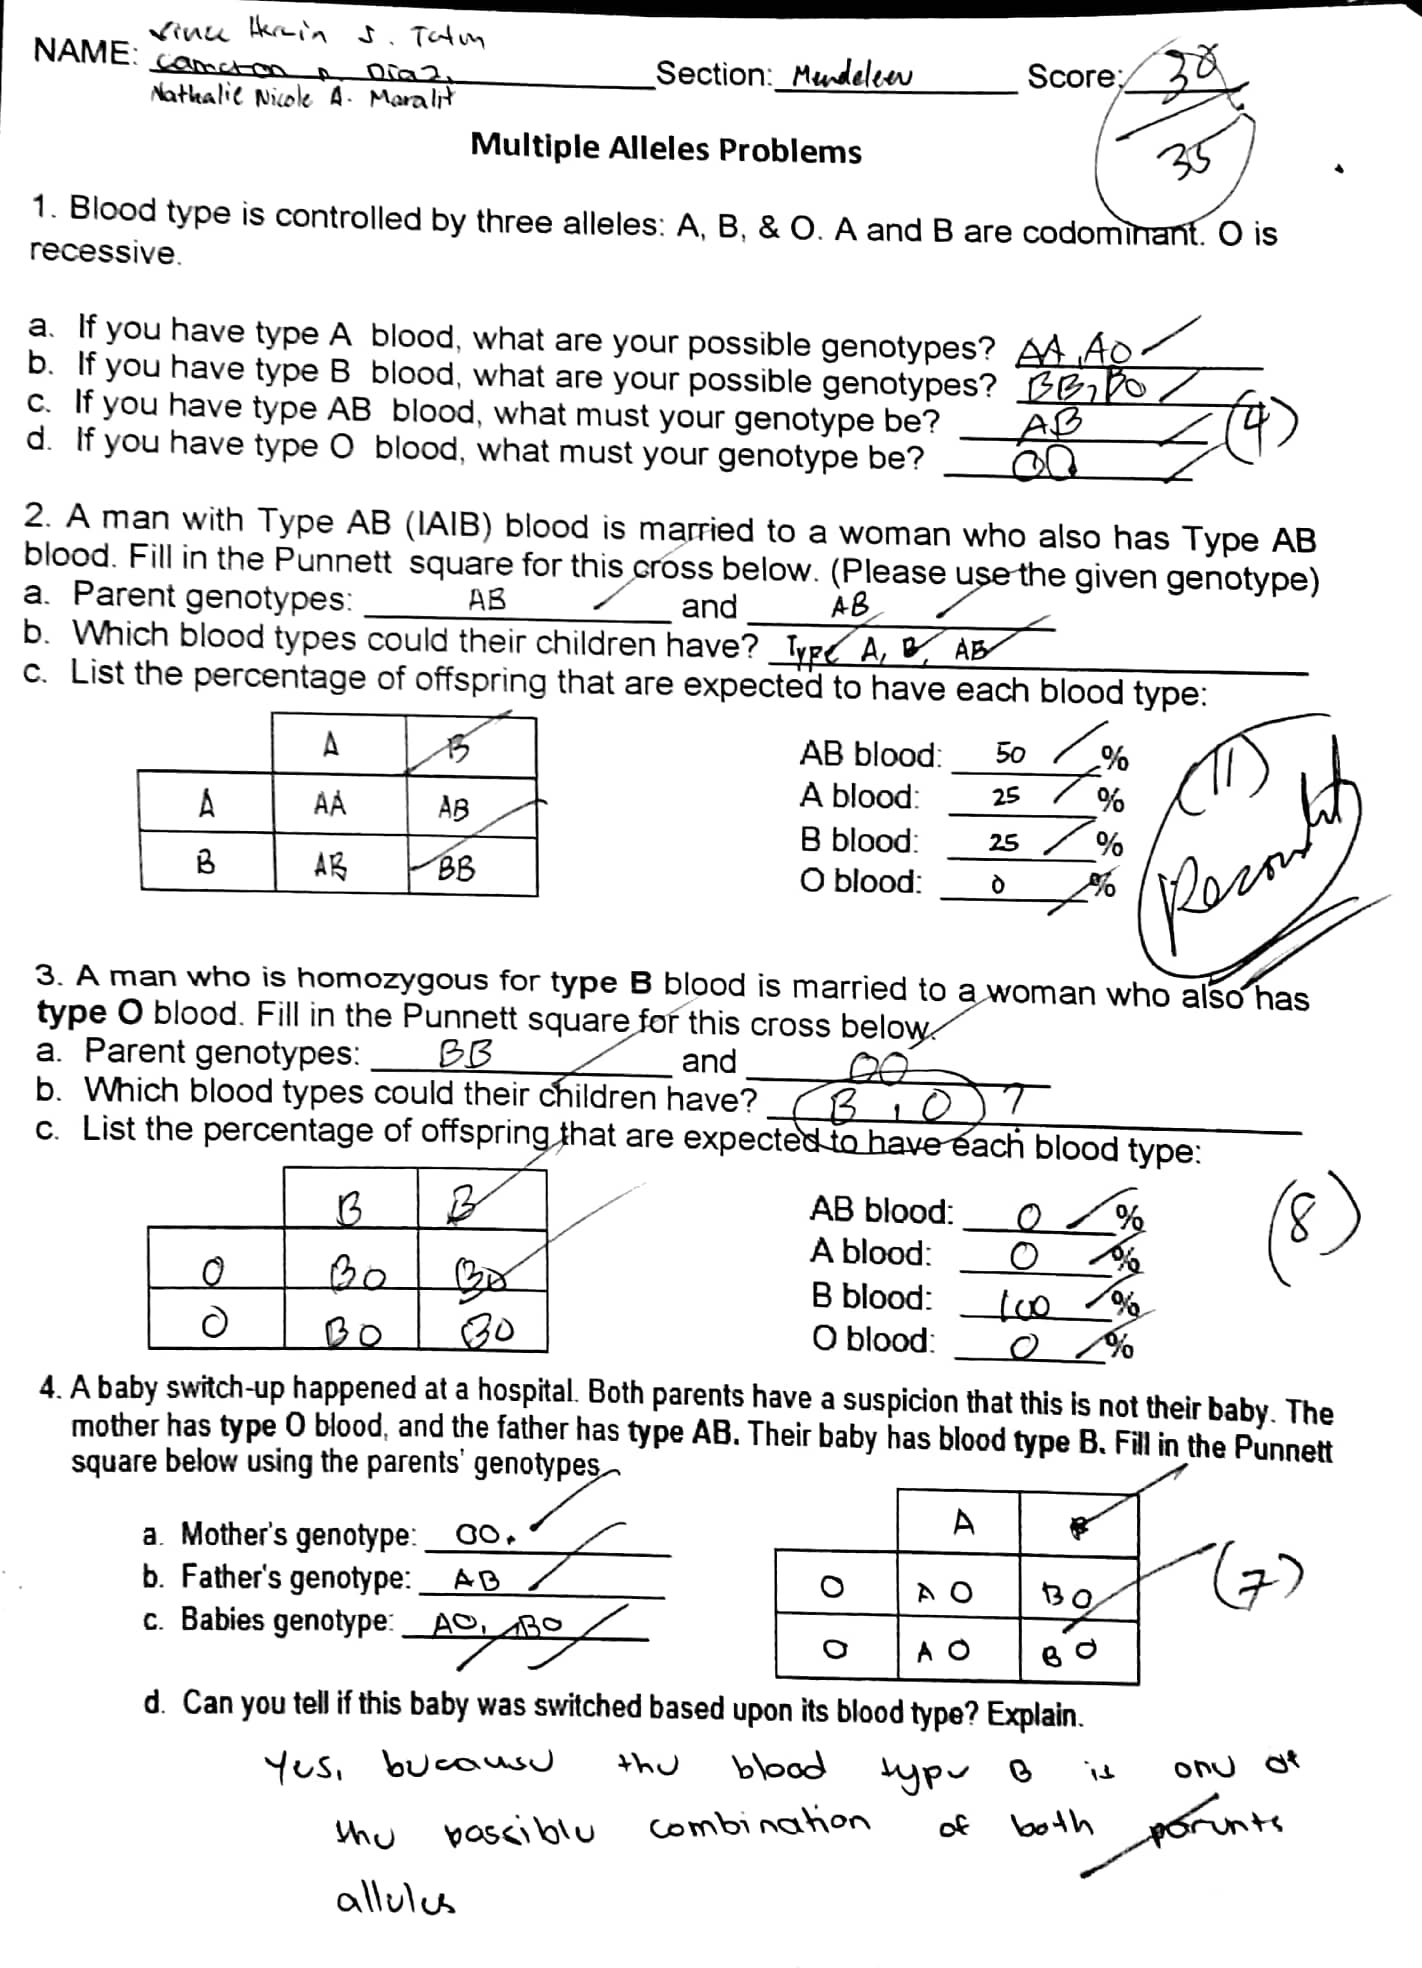 NAME: Vince Herin J. Tatun
Cameron P. Diaz,
Nathalie Nicole A. Maralit
Section: Mendeleev Score: 30
35
Multiple Alleles Problems
1. Blood type is controlled by three alleles: A, B, & O. A and B are codominant. O is
recessive.
a. If you have type A blood, what are your possible genotypes? AA, AO
b. If you have type B blood, what are your possible genotypes? BB, BO
c. If you have type AB blood, what must your genotype be? AB
d. If you have type O blood, what must your genotype be? OO
(4)
2. A man with Type AB (IAIB) blood is married to a woman who also has Type AB
blood. Fill in the Punnett square for this cross below. (Please use the given genotype)
a. Parent genotypes: AB and AB
b. Which blood types could their children have? Type A, B, AB
c. List the percentage of offspring that are expected to have each blood type:
A B
A AA AB
B AB BB
AB blood: 50 %
A blood: 25 %
B blood: 25 %
O blood: 0 %
(11)
Recount
3. A man who is homozygous for type B blood is married to a woman who also has
type O blood. Fill in the Punnett square for this cross below.
a. Parent genotypes: BB and OO
b. Which blood types could their children have? B, O ?
c. List the percentage of offspring that are expected to have each blood type:
B B
O BO BO
O BO BO
AB blood: 0 %
A blood: 0 %
B blood: 100 %
O blood: 0 %
(8)
4. A baby switch-up happened at a hospital. Both parents have a suspicion that this is not their baby. The
mother has type O blood, and the father has type AB. Their baby has blood type B. Fill in the Punnett
square below using the parents' genotypes
a. Mother's genotype: OO.
b. Father's genotype: AB
c. Babies genotype: AO, BO
A B
O AO BO
O AO BO
(7)
d. Can you tell if this baby was switched based upon its blood type? Explain.
Yes, because the blood type B is one of
the possible combination of both parents
alleles